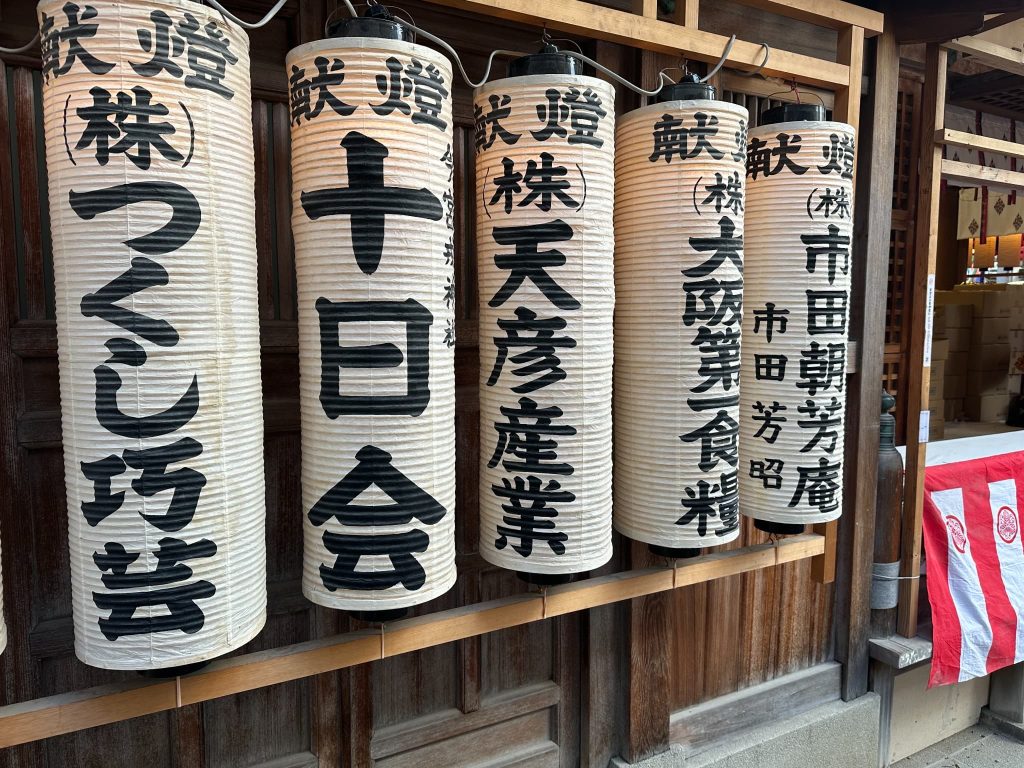 献燈
(株)つくし巧芸
献燈
今宮戎神社
十日会
献燈
(株)天彦産業
献燈
(株)大阪第一食糧
献燈
(株)市田朝芳庵
市田芳昭